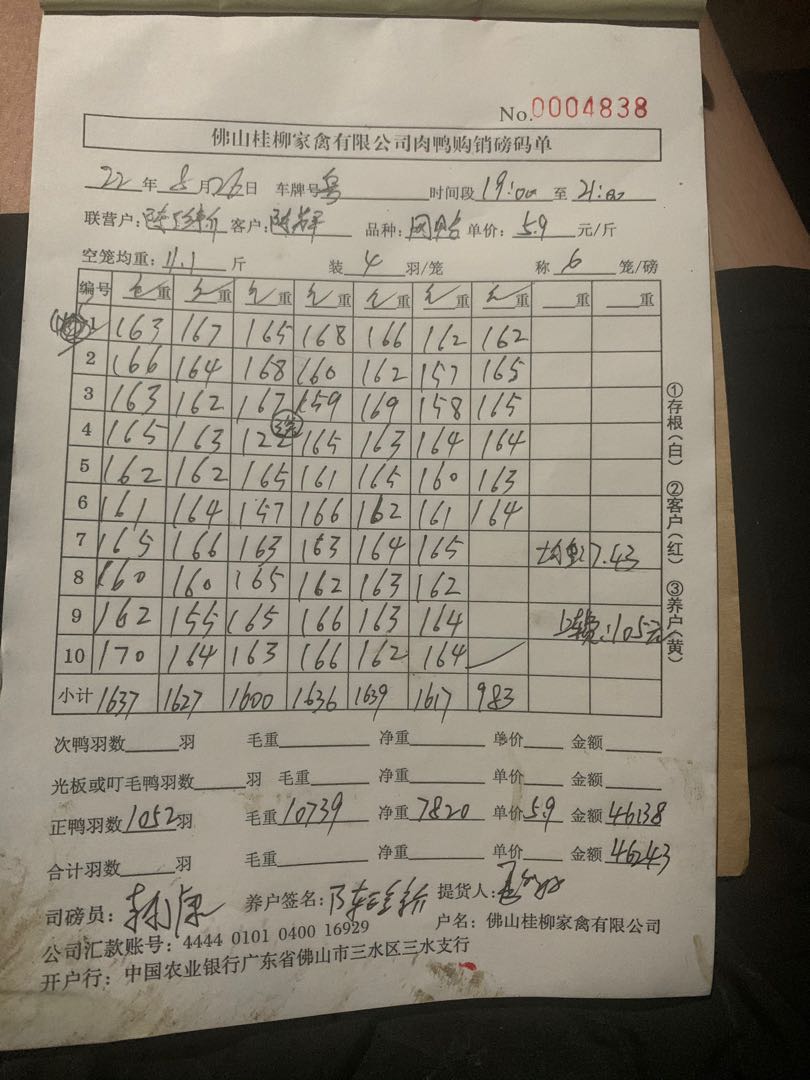 No.0004838
佛山桂柳家禽有限公司肉鸭购销磅码单
22年8月26日 车牌号粤 时间段19:00至21:00
联营户: 客户: 品种: 单价:5.9元/斤
空笼均重:11.1斤 装4羽/笼 称6笼/磅
编号 毛重 毛重 毛重 毛重 毛重 毛重 毛重 重 重
1 163 167 165 168 166 162 162
2 166 164 168 160 162 157 165
3 163 162 167 159 169 158 165
4 165 163 122 165 163 164 164
5 162 162 165 161 165 160 163
6 161 164 157 166 162 161 164
7 165 166 163 163 164 165 均重:7.43
8 160 160 165 162 163 162
9 162 155 165 166 163 164 105元
10 170 164 163 166 162 164
小计 1637 1627 1600 1636 1639 1617 983
①存根(白) ②客户(红) ③养户(黄)
次鸭羽数 羽 毛重 净重 单价 金额
光板或叮毛鸭羽数 羽 毛重 净重 单价 金额
正鸭羽数1052羽 毛重10739 净重7820 单价5.9 金额46138
合计羽数 羽 毛重 净重 单价 金额46243
司磅员: 养户签名: 提货人:
公司汇款账号:4444 0101 0400 16929 户名:佛山桂柳家禽有限公司
开户行:中国农业银行广东省佛山市三水区三水支行